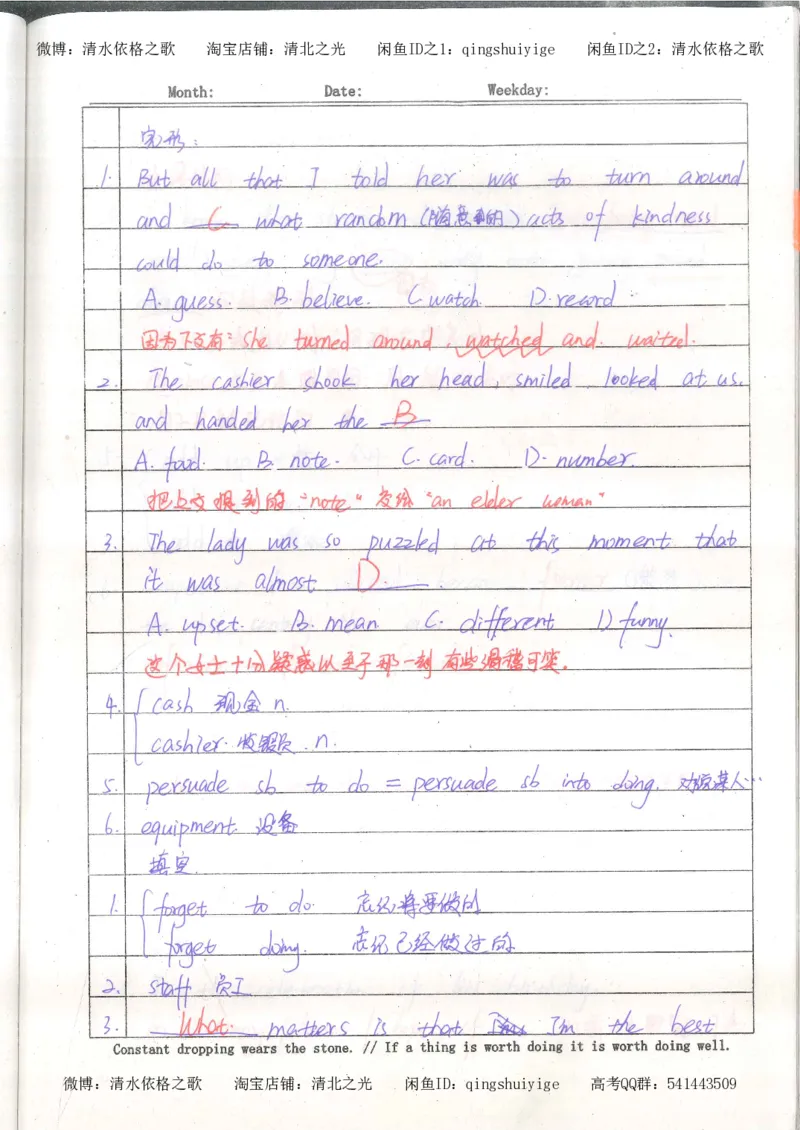 微博：清水依格之歌 淘宝店铺：清北之光 闲鱼ID之1：qingshuiyige 闲鱼ID之2：清水依格之歌
Month: Date: Weekday:
完形：
1. But all that I told her was to turn around
and C what random (随意的) acts of kindness
could do to someone.
A. guess. B. believe. C. watch. D. record
因为下文有：she turned around, watched and waited.
2. The cashier shook her head, smiled, looked at us,
and handed her the B
A. food. B. note. C. card. D. number.
把上文提到的 "note" 交给 "an elder woman"
3. The lady was so puzzled at this moment that
it was almost D.
A. upset. B. mean C. different D. funny.
这个女士十分疑惑以至于那一刻有些滑稽可笑.
4. cash 现金 n.
cashier. 收银员. n.
5. persuade sb to do = persuade sb into doing. 劝某人…
6. equipment 设备
填空
1. forget to do. 忘记将要做的
forget doing. 忘记已经做过的
2. staff 员工
3. What matters is that I'm the best
Constant dropping wears the stone. // If a thing is worth doing it is worth doing well.
微博：清水依格之歌 淘宝店铺：清北之光 闲鱼ID：qingshuiyige 高考QQ群：541443509